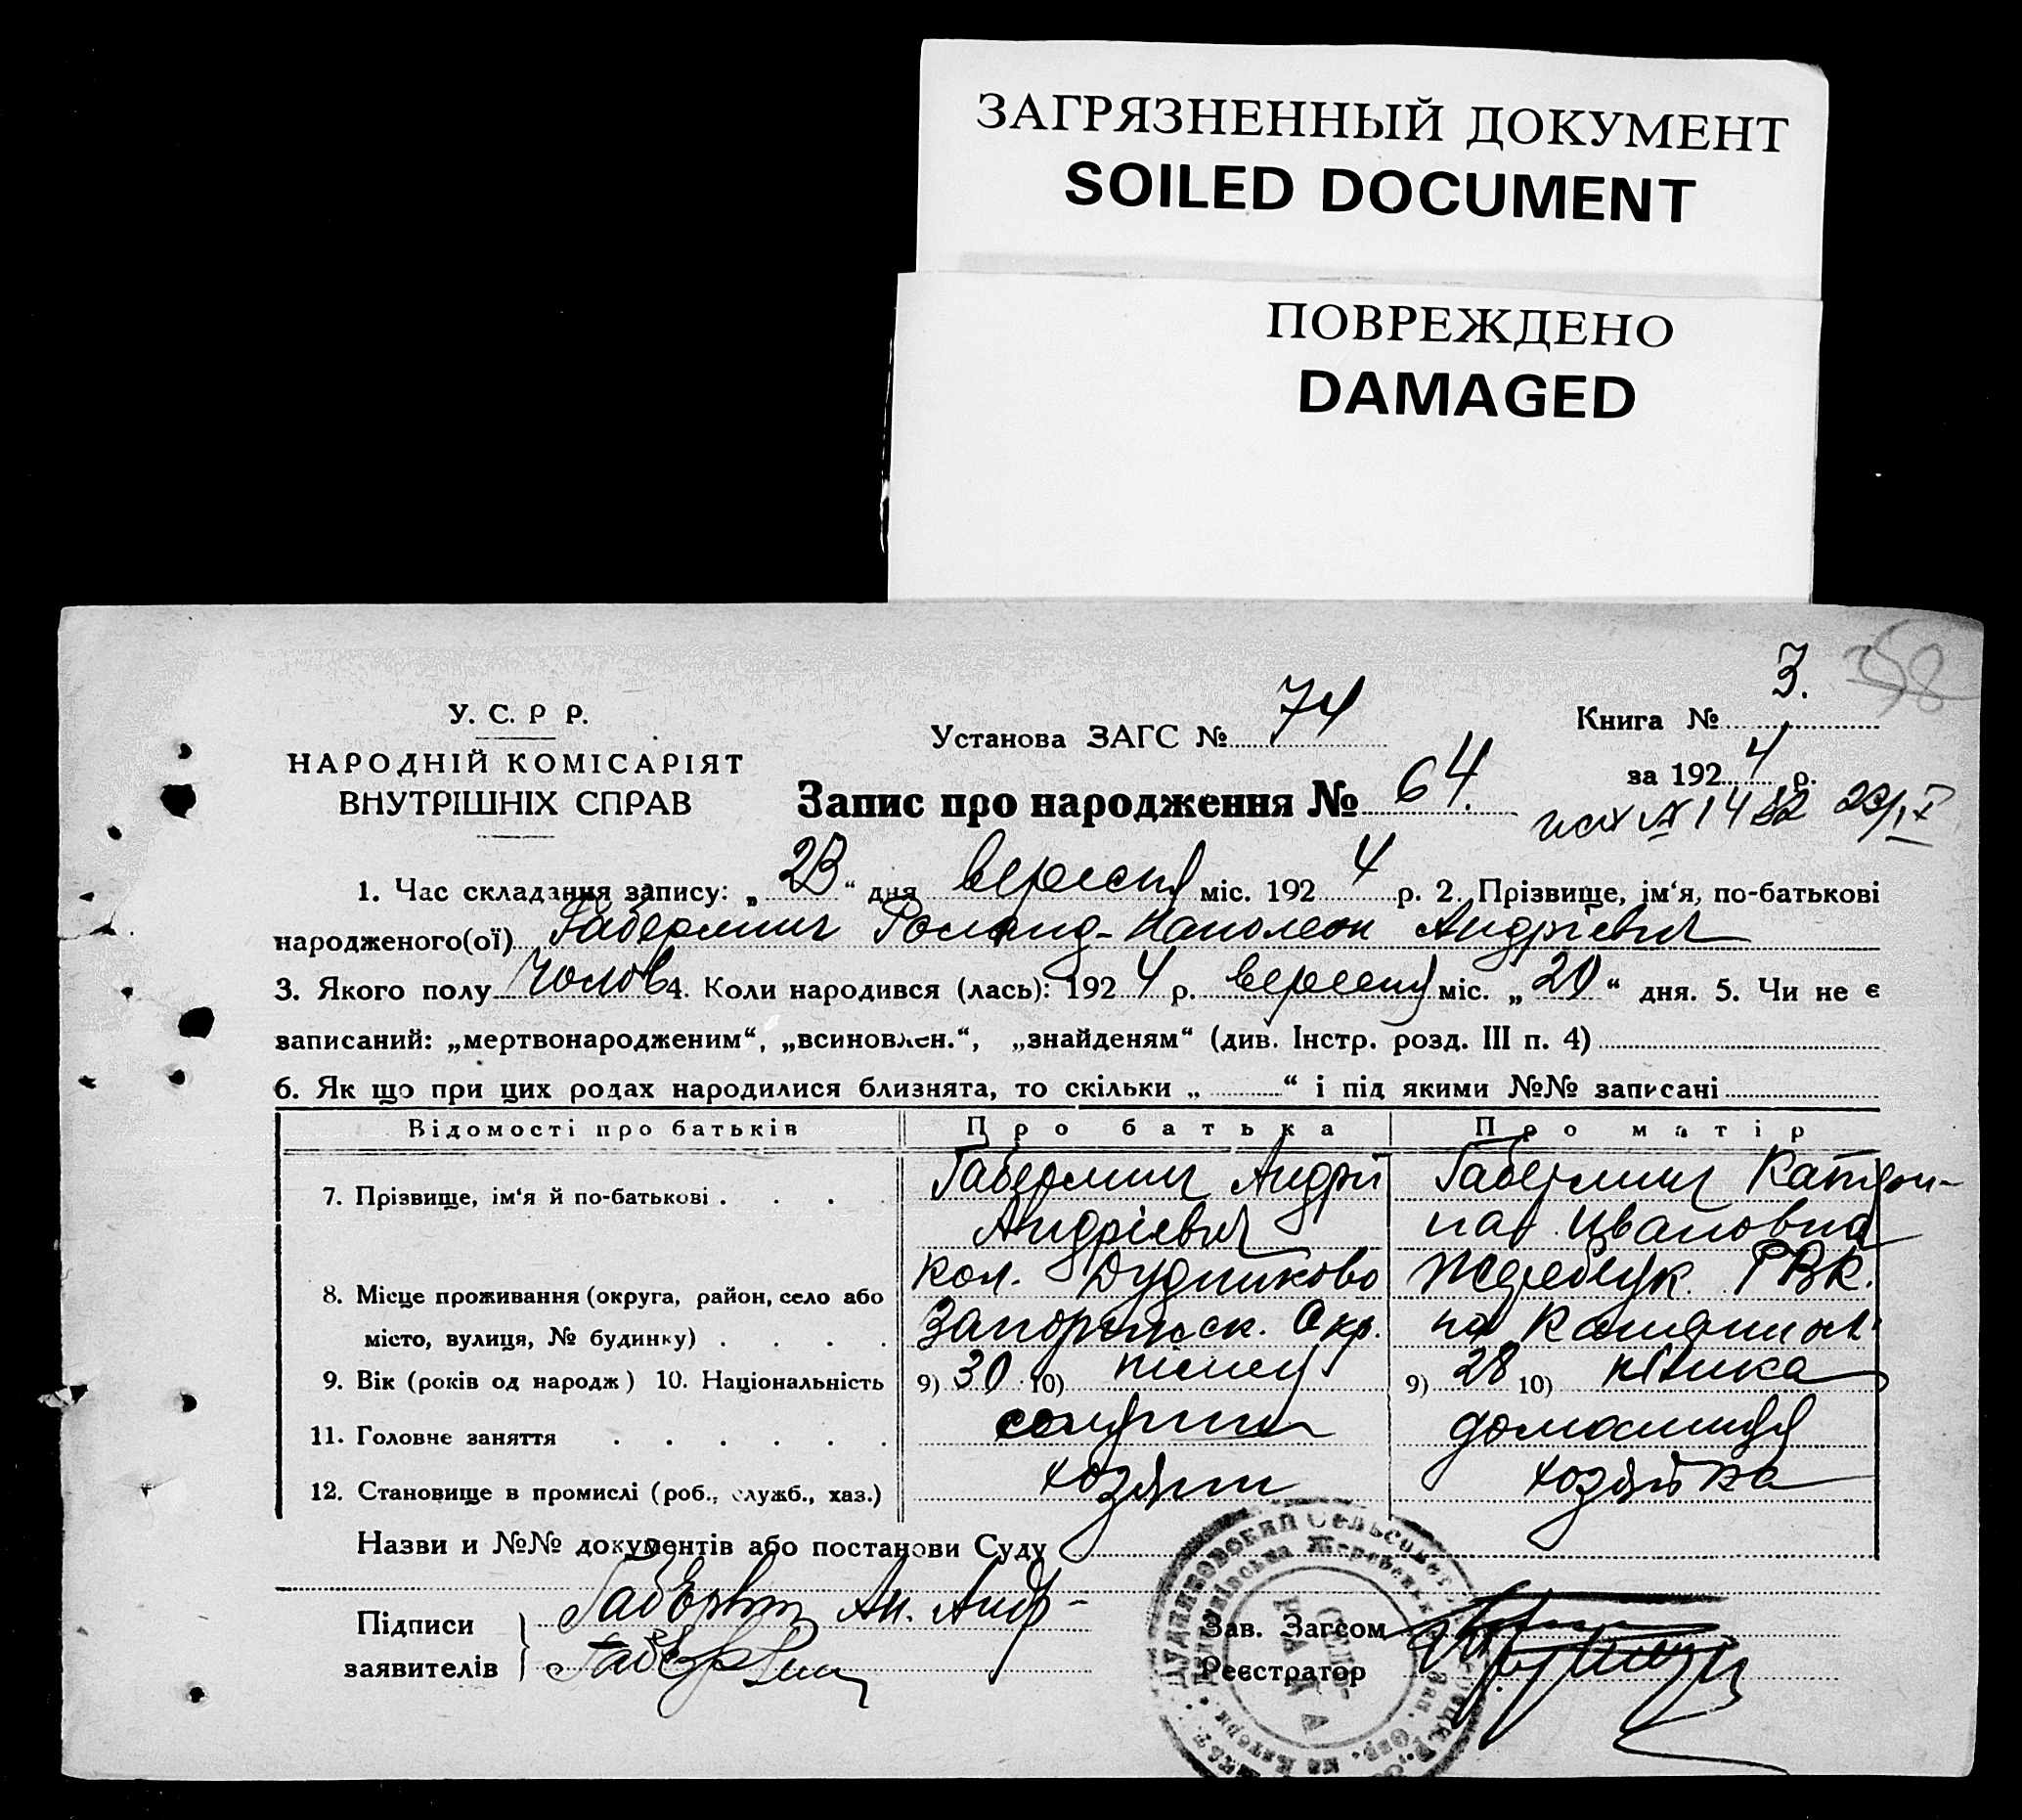 ЗАГРЯЗНЕННЫЙ ДОКУМЕНТ
SOILED DOCUMENT
ПОВРЕЖДЕНО
DAMAGED
358
У. С. Р Р.
НАРОДНІЙ КОМІСАРІЯТ
ВНУТРІШНІХ СПРАВ
Установа ЗАГС № 74
Книга № 3.
за 1924 р.
Запис про народження № 64.
исх № 1482 23/IX
1. Час складання запису: „23“ дня вересня міс. 1924 р. 2. Прізвище, ім‘я, по-батькові
народженого(ої) Габерлинг Роланд-Наполеон Андрієвич
3. Якого полу Чолов 4. Коли народився (лась): 1924 р. вересня міс. „20“ дня. 5. Чи не є
записаний: „мертвонародженим“, „всиновлен.“, „знайденям“ (див. Інстр. розд. III п. 4)
6. Як що при цих родах народилися близнята, то скільки „ “ і під якими №№ записані
Відомості про батьків Про батька Про матір
7. Прізвище, ім‘я й по-батькові . . . . Габерлинг Андрій Габерлинг Катри-
Андрієвич на Ивановна
8. Місце проживання (округа, район, село або кол. Дудниково Жеребецк. РВК.
місто, вулиця, № будинку) . . . . Запоріжск. Окр.
9. Вік (років од народж) 10. Національність 9) 30 10) німец 9) 28 10) німка
11. Головне заняття . . . . . . домашняя
12. Становище в промислі (роб., служб., хаз.) хозяин хозяйка
Назви и №№ документів або постанови Суду
Підписи
заявителів
Ан. Андр-
Зав. Загсом
Реєстратор